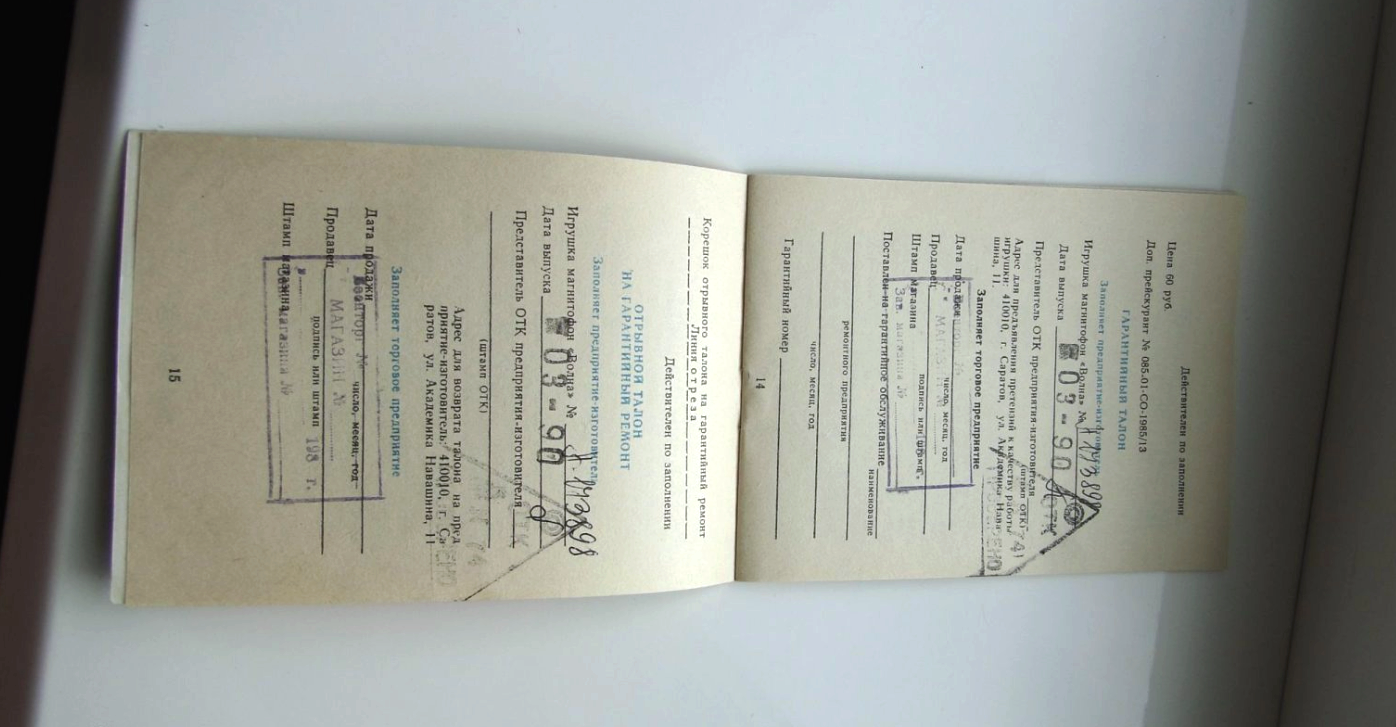 Действителен по заполнении
Цена 60 руб.
Доп. прейскурант № 085-01-СО-1985/13
ГАРАНТИЙНЫЙ ТАЛОН
Заполняет предприятие-изготовитель
Игрушка магнитофон «Волна» № 173898
Дата выпуска 03-90
Представитель ОТК предприятия-изготовителя
(штамп ОТК)
ОТК
74
Адрес для предъявления претензий к качеству работы
игрушки: 410010, г. Саратов, ул. Академика Нава-
шина, 11.
Заполняет торговое предприятие
Дата продажи
число, месяц, год
Продавец
МАГАЗИН №
подпись или штамп
Штамп магазина
Зав. магазина №
Поставлен на гарантийное обслуживание
наименование
ремонтного предприятия
число, месяц, год
Гарантийный номер
14
Корешок отрывного талона на гарантийный ремонт
Линия отреза
Действителен по заполнении
ОТРЫВНОЙ ТАЛОН
НА ГАРАНТИЙНЫЙ РЕМОНТ
Заполняет предприятие-изготовитель
Игрушка магнитофон «Волна» № 173898
Дата выпуска 03-90
Представитель ОТК предприятия-изготовителя
ОТК
(штамп ОТК)
74
Адрес для возврата талона на пред-
приятие-изготовитель: 410010, г. Са-
ратов, ул. Академика Навашина, 11
Заполняет торговое предприятие
Дата продажи
число, месяц, год
Продавец
МАГАЗИН №
подпись или штамп
198 г.
Штамп магазина
магазина №
15